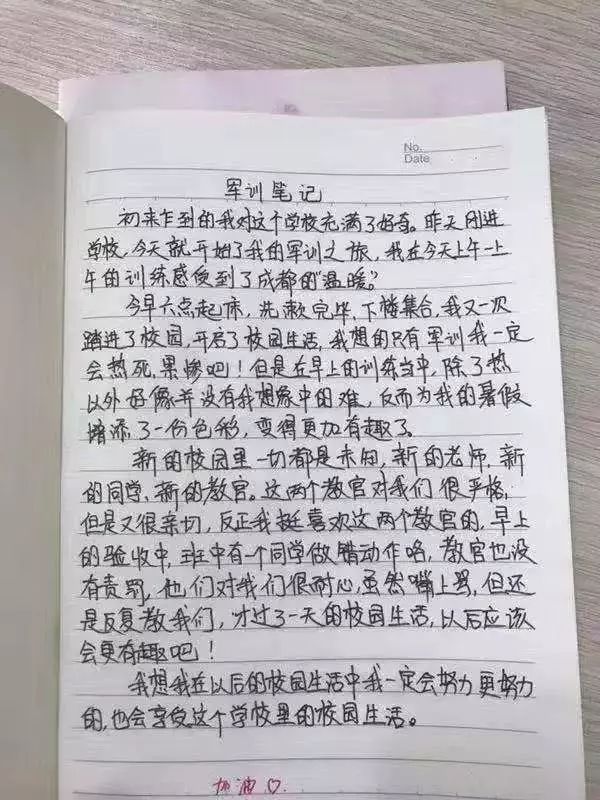 No.
Date
军训笔记
初来乍到的我对这个学校充满了好奇。昨天刚进
学校,今天就开始了我的军训之旅,我在今天上午一上
午的训练感受到了成都的"温暖"。
今早六点起床,洗漱完毕,下楼集合,我又一次
踏进了校园,开启了校园生活,我想的只有军训我一定
会热死,累惨吧!但是在早上的训练当中,除了热
以外好像并没有我想象中的难,反而为我的暑假
增添了一份色彩,变得更加有趣了。
新的校园里一切都是未知,新的老师,新
的同学、新的教官。这两个教官对我们很严格,
但是又很亲切,反正我挺喜欢这两个教官的,早上
的验收中,班中有一个同学做错动作咯,教官也没
有责罚,他们对我们很耐心,虽然嘴上骂,但还
是反复教我们,才过了一天的校园生活,以后应该
会更有趣吧!
我想我在以后的校园生活中我一定会努力更努力
的,也会享受这个学校里的校园生活。
加油♡.